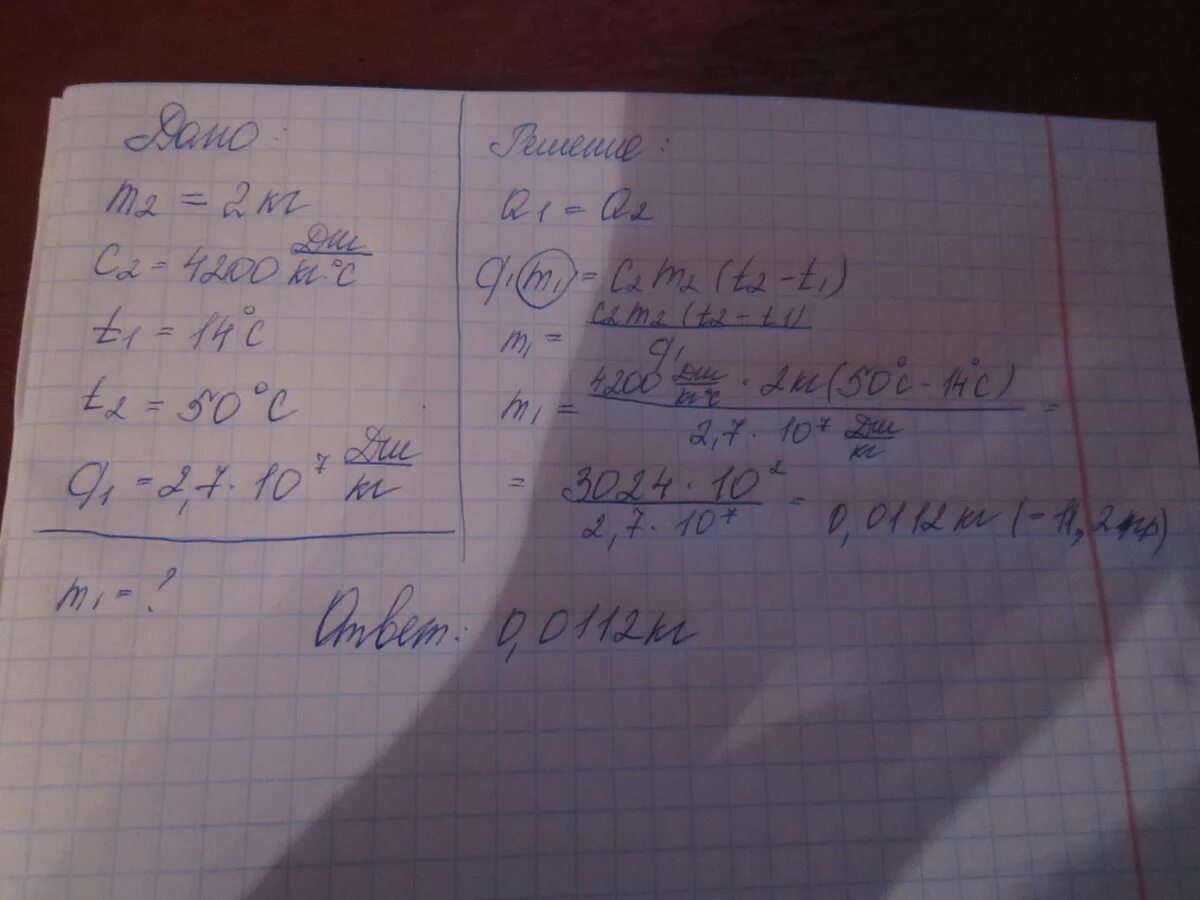 Дано:
m₂ = 2 кг
c₂ = 4200 Дж/кг·°С
t₁ = 14°С
t₂ = 50°С
q₁ = 2,7 · 10⁷ Дж/кг
m₁ = ?
Решение:
Q₁ = Q₂
q₁m₁ = c₂m₂(t₂ - t₁)
m₁ = c₂m₂(t₂ - t₁)/q₁
m₁ = 4200 Дж/кг°С · 2кг(50°С - 14°С)/2,7 · 10⁷ Дж/кг =
= 3024 · 10²/2,7 · 10⁷ = 0,0112 кг (= 11,2 гр)
Ответ: 0,0112 кг